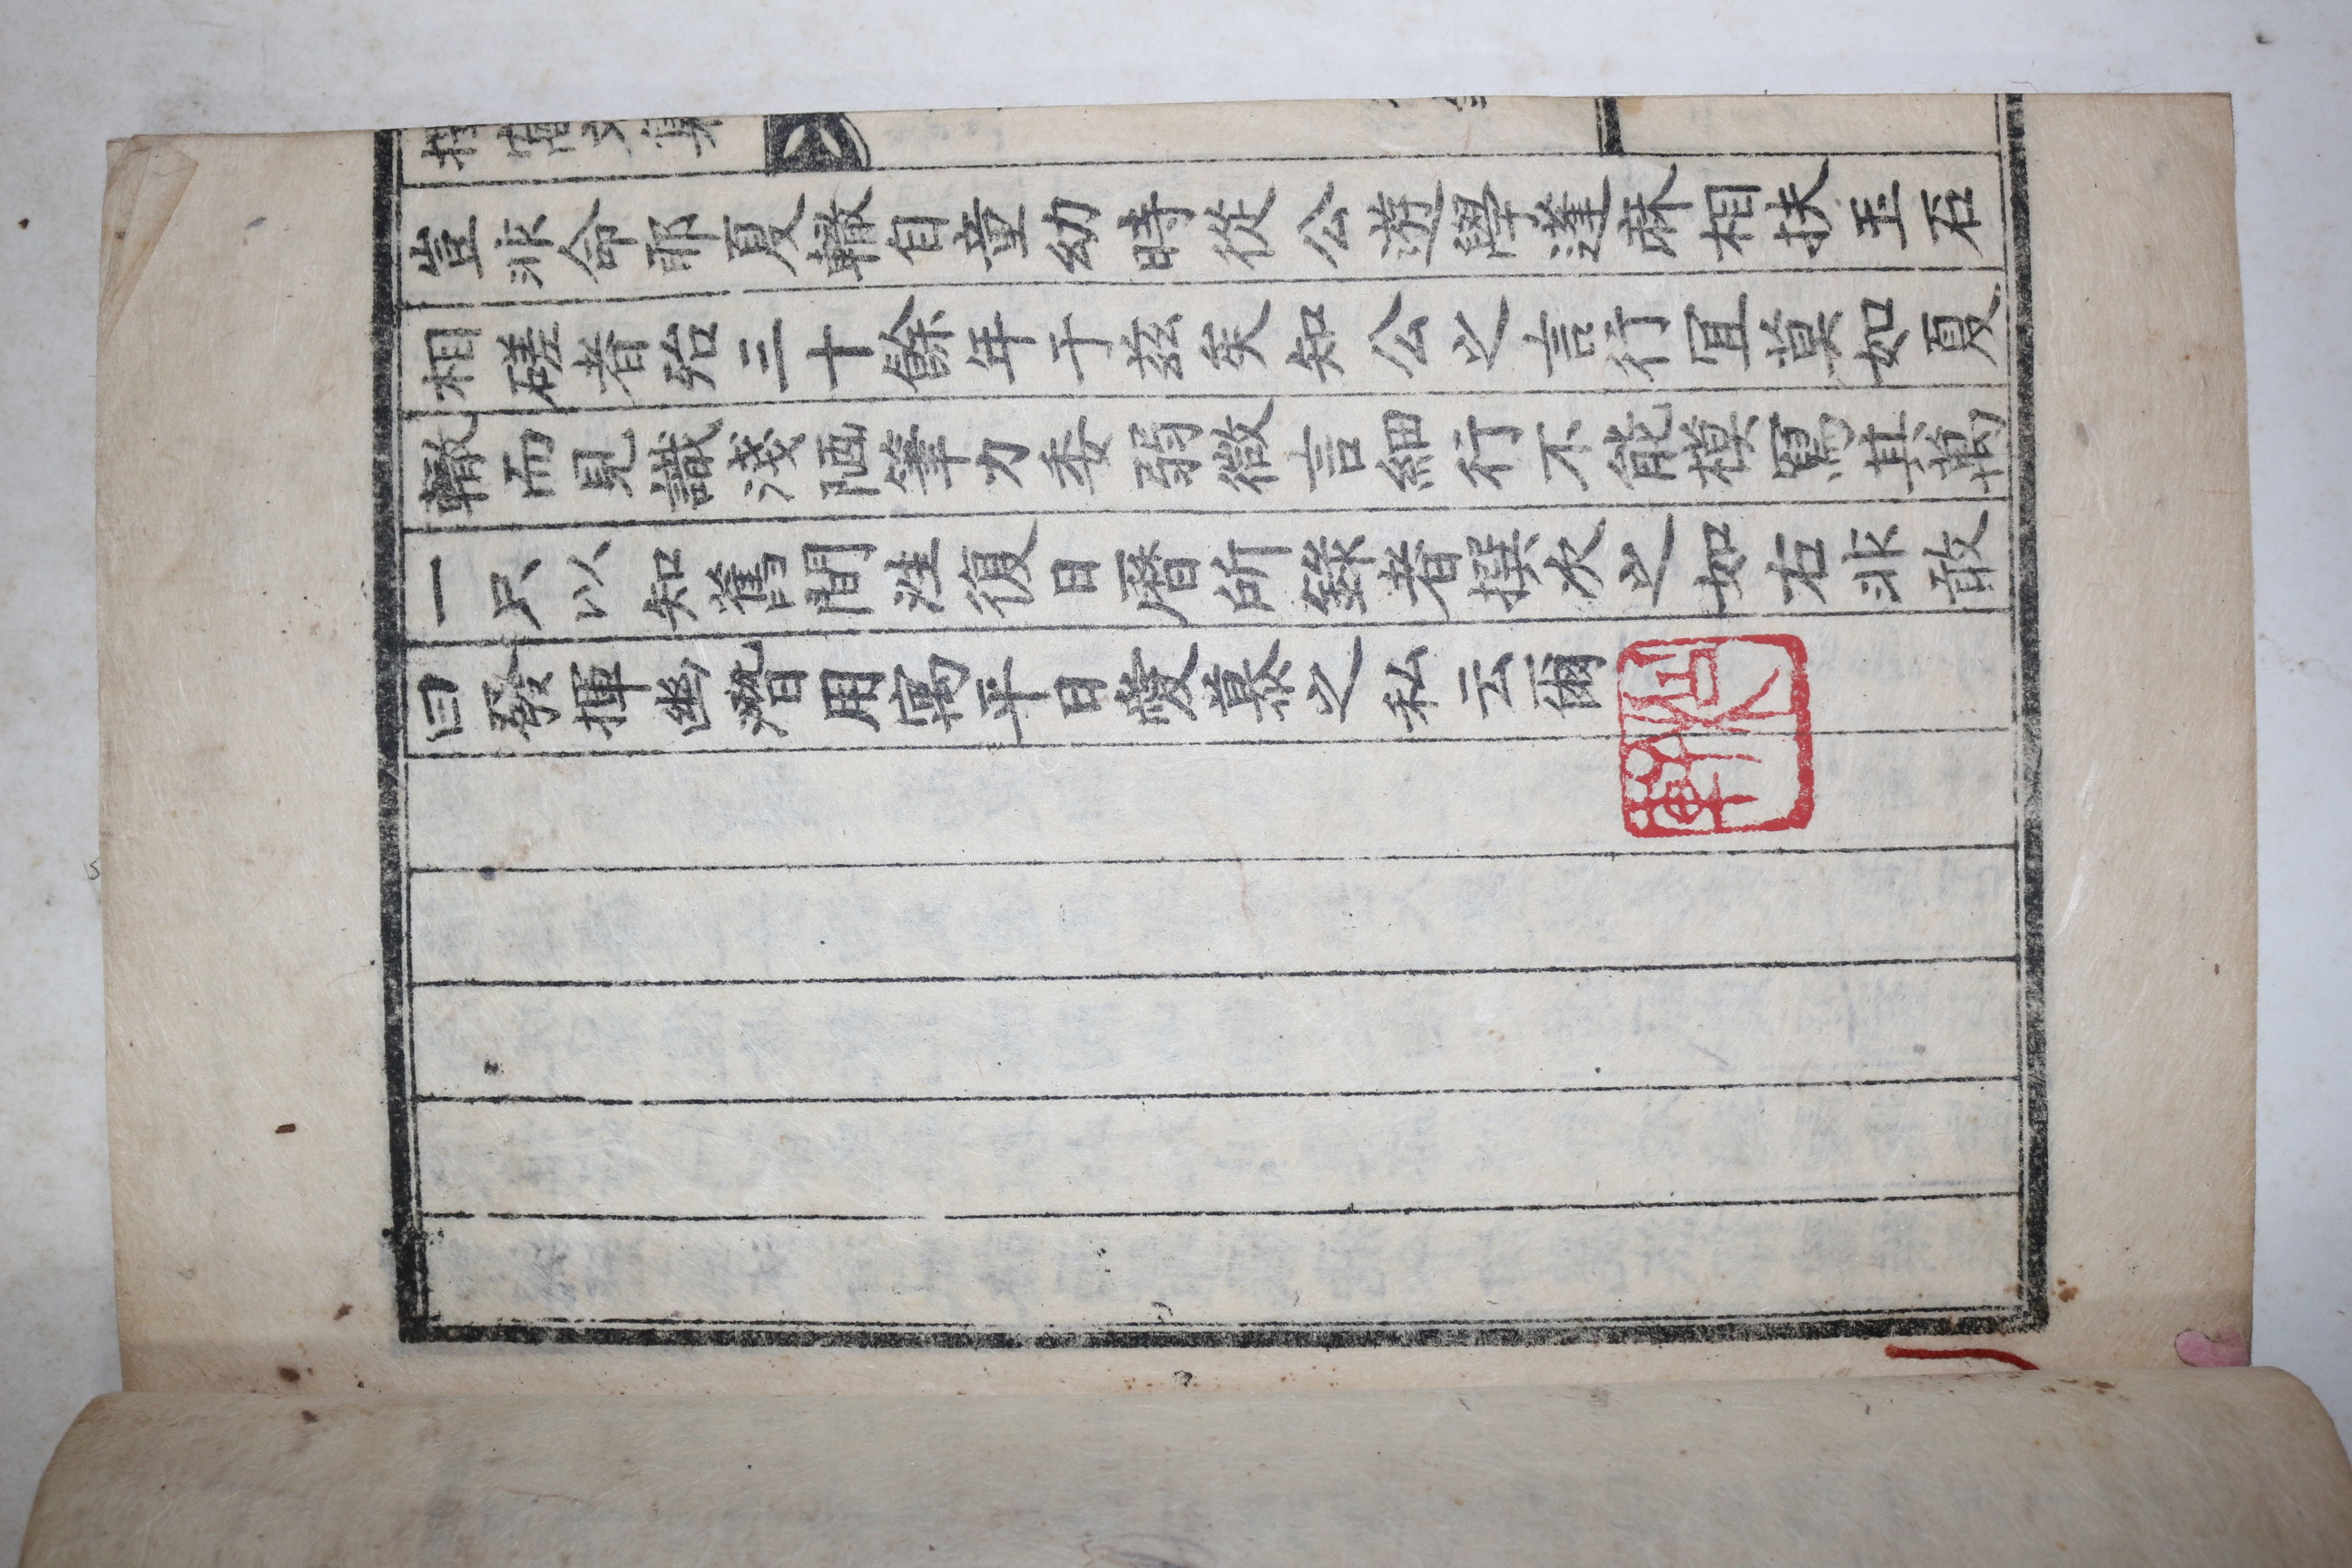 窩文集
豈非命耶夏轍自童幼時從公遊學蓬麻相扶玉石
相磋者殆三十餘年于玆矣知公之言行冝莫如夏
轍而見識淺陋筆力委弱微言細行不能模冩其萬
一只以知舊間泩復日曆所錄者撰次之如右非敢
曰發揮幽潛用寓平日愛慕之私云爾
軒